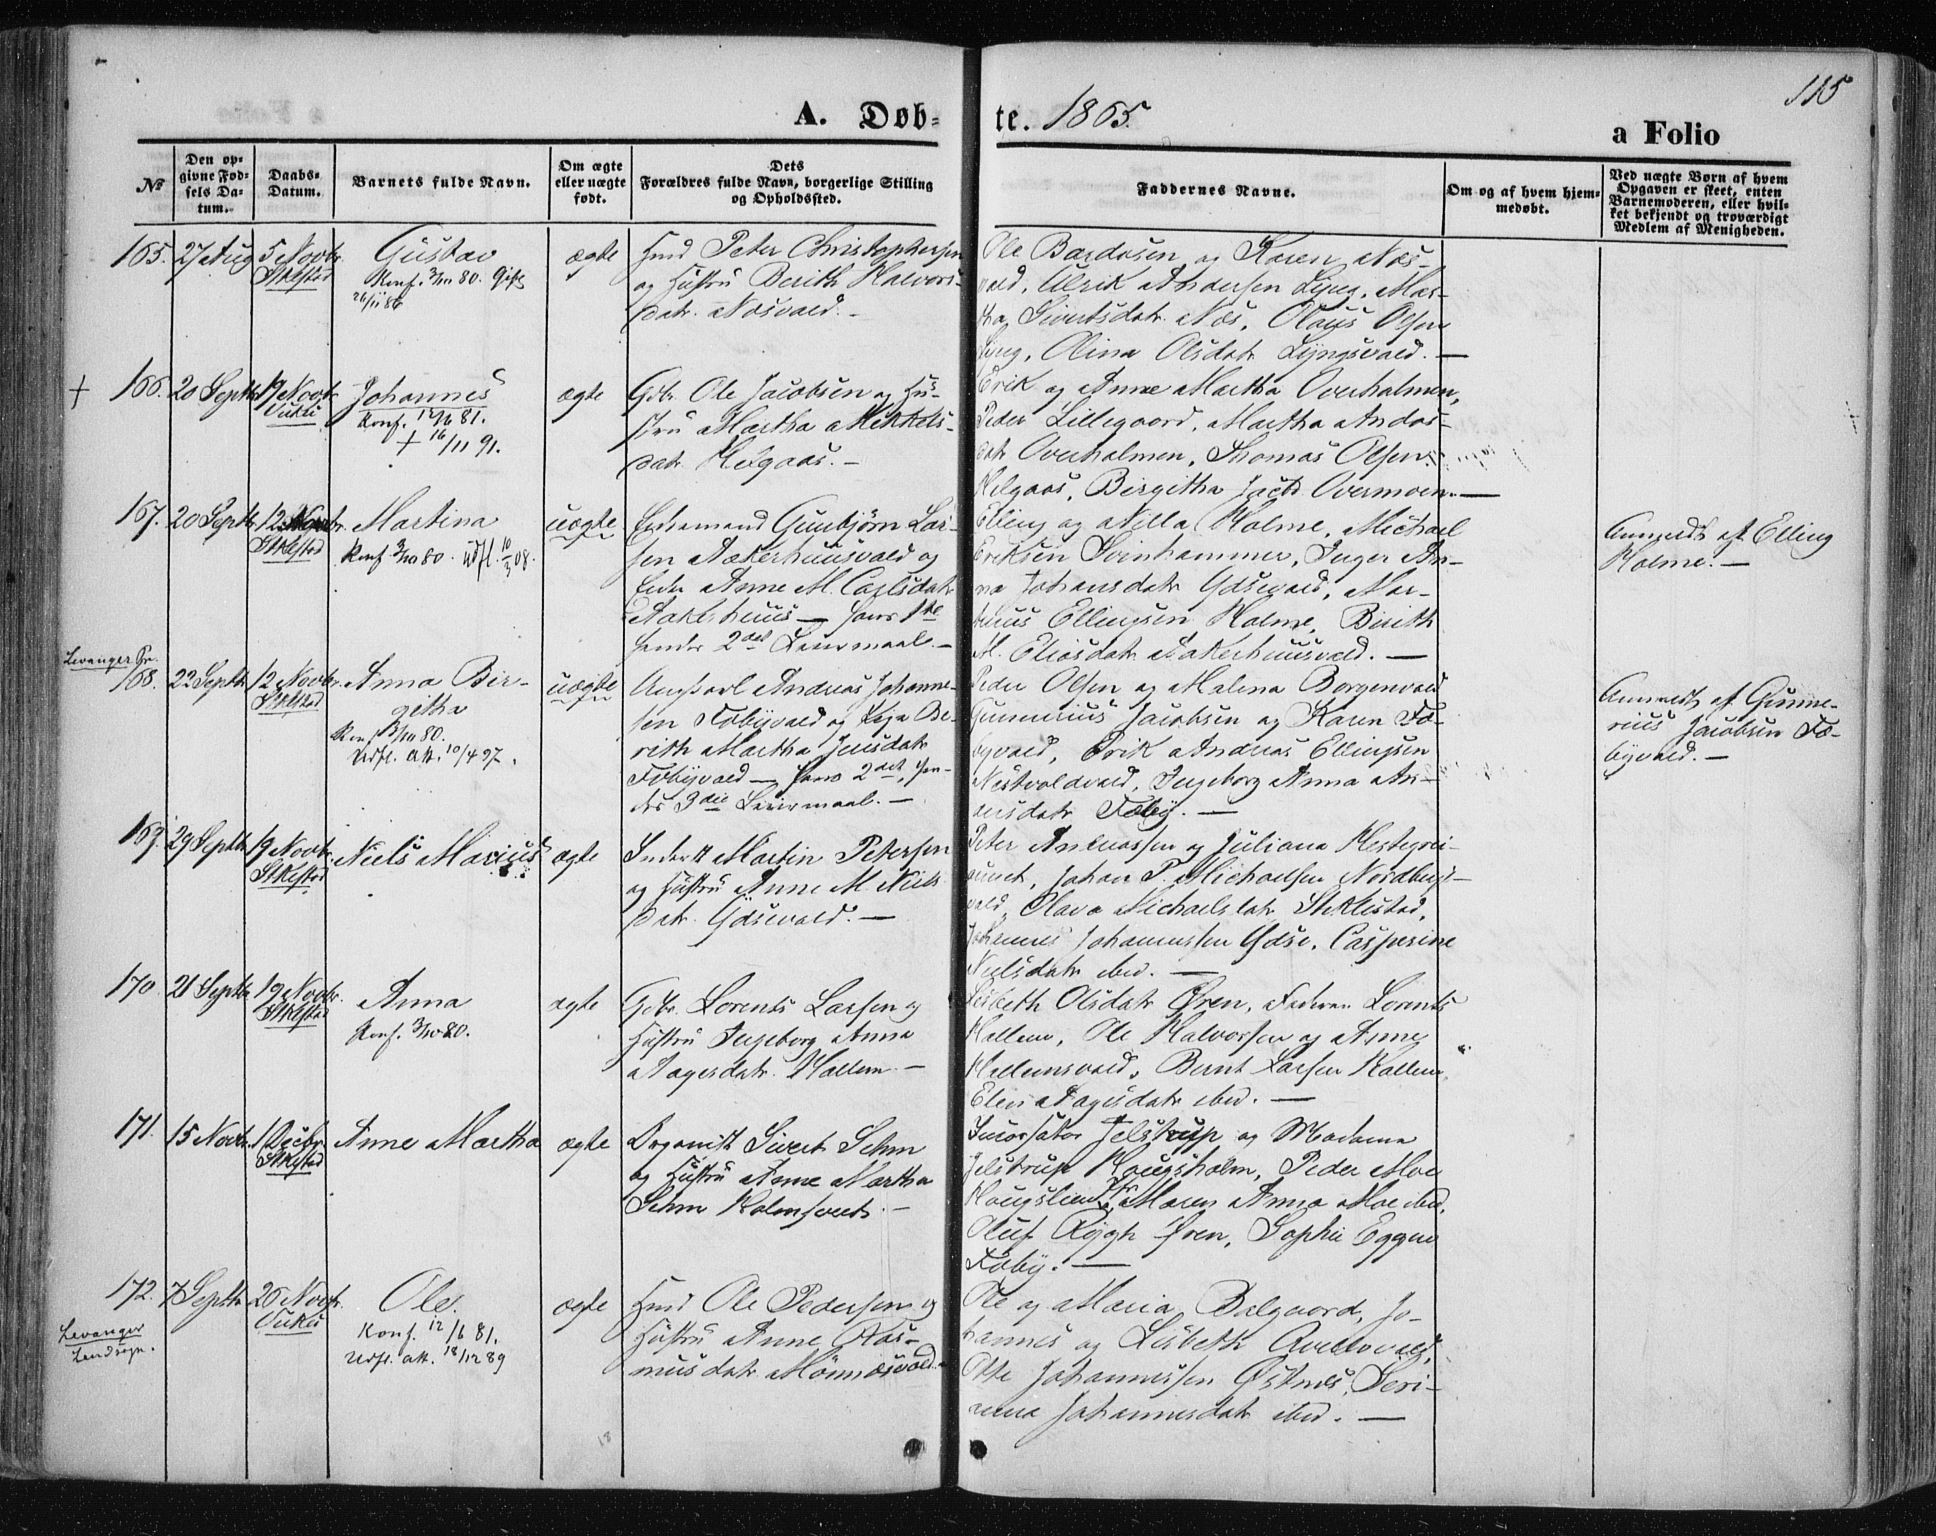 115
A. Døb-
te. 1865.
a Folio
№
Den op-
givne Fød-
sels Da-
tum.
Daabs-
Datum.
Barnets fulde Navn.
Om ægte
eller uægte
født.
Dets
Forældres fulde Navn, borgerlige Stilling
og Opholdssted.
Faddernes Navne.
Om og af hvem hjem-
medøbt.
Ved uægte Børn af hvem
Opgaven er skeet, enten
Barnemoderen, eller hvil-
ket bekjendt og troværdigt
Medlem af Menigheden.
165. 27 Aug 5 Novbr.
Stkestad
Gustav
Konf. 3/10 80. Gift
26/11 86
ægte
Husmd Peter Christophersen
og Hustru Berith Halvors-
datr. Næsvald. -
Ole Bardosen og Karen Næs-
vald, Ulrik Andersen Lyng, Mar-
tha Sivertsdatr. Næs, Olaus Olsen
Lyng, Olina Olsdatr Lyngsvald. —
+ 166. 20 Septbr 19 Novbr.
Vuku
Johannes
Konf. 12/6 81.
+ 16/11 91.
ægte
Gdbr. Ole Jacobsen og Hu-
stru Martha Mikkels-
datr. Helgaas. -
Erik og Anne Martha Overholmen,
Peder Lillegaard, Martha Andas-
datr Overholmen, Thomas Olsen
Helgaas, Birgitha Jacbd Overmoen. —
167. 20 Septbr 12 Novbr.
Stkestad
Martina
Konf. 3/10 80. Udfl. 10/3 08.
uægte
Enkemand Gunbjørn Lar-
sen Aakerhuusvald og
Enke Anne M. Carlsdatr
Aakerhuus — hans 1ste
hendes 2det Leiermaal. -
Elling og Nilla Holme, Michael
Eriksen Svinhammer, Inger An-
na Johansdatr Ydsevald, Mar-
thinus Ellingsen Holme, Berith
M. Eliasdatr Aakerhuusvald. —
Anmeldt af Elling
Holme. —
Levanger Pr.
168. 22 Septbr 12 Novbr.
Stkestad
Anna Bir-
githa
Konf 3/10 80.
Udfl. att. 10/4 97.
uægte
Ungkarl Andreas Johanne-
sen Fæbyvald og Pige Be-
rith Martha Jensdatr
Fæbyvald — hans 2det, hen-
des 3die Leiermaal. —
Peder Olsen og Malena Borgenvald
Gunnerius Jacobsen og Karen Fæ-
byvald, Erik Andreas Ellingsen
Nestvoldvald, Ingeborg Anna An-
dersdatr Fæby. —
Anmeldt af Gunne-
rius Jacobsen Fæ-
byvald. —
169. 29 Septbr 19 Novbr.
Stkestad
Niels Marius
ægte
Inderst Martin Petersen
og Hustru Anne M. Niels-
datr. Ydsevald. —
Peter Andreassen og Juliana Hestegrei-
aunet, Johan P. Michaelsen Nordbergs-
vald, Olava Michaelsdatr Stiklestad,
Johannes Johannessen Ydse, Casperine
Nielsdatr ibid. —
170. 21 Septbr 19 Novbr.
Stkestad
Anna
Konf. 3/10 80.
ægte
Gdbr. Lorents Larsen og
Hustru Ingeborg Anna
Aagesdatr. Hallem. —
Lisbeth Olsdatr Øren, Faderen Lorents
Hallem, Ole Halvorsen og Anne
Hallemsvald, Bernt Larsen Hallem,
Elen Aagesdatr ibid. —
171. 15 Novbr. 1 Decbr.
Stkestad
Anne Martha
ægte
Organist Sivert Sehm
og Hustru Anne Martha
Sehm Holmsveet. —
Jelstrup og Madame
Jelstrup Hougsholm, Peder Moe
Maren Anna Moe ibid,
Oluf Rygh Øren, Sophie Eggen
Fæby. —
172. 7 Septbr 26 Novbr.
Vuku
Levanger
Landsogn.
Ole.
Konf. 12/6 81.
Udfl. att. 18/12 89
ægte
Husmd Ole Pedersen og
Hustru Anne Ras-
musdatr. Mønnæsvald.
Ole og Maria Balgaard, Jo-
hannes og Lisbeth
Otte Johannessen Østnes, Seri-
anna Johannesdatr ibid. —
18